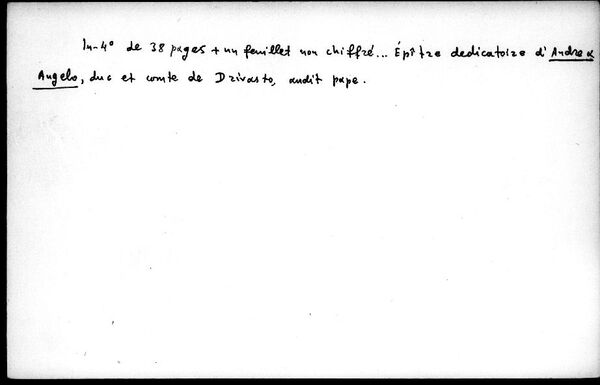 In-4° de 38 pages + un feuillet non chiffré... Épître dedicatoire d'Andrea
Angelo, duc et comte de Drivasto, audit pape.